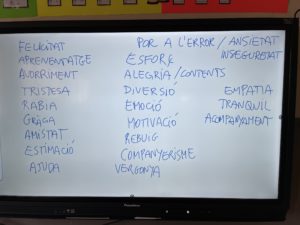 FELICITAT
APRENENTATGE
AVORRIMENT
TRISTESA
RÀBIA
GRÀCIA
AMISTAT
ESTIMACIÓ
AJUDA
POR A L'ERROR / ANSIETAT
INSEGURETAT
ESFORÇ
ALEGRIA / CONTENTS
DIVERSIÓ
EMOCIÓ
MOTIVACIÓ
REBUIG
COMPANYERISME
VERGONYA
EMPATIA
TRANQUIL
ACOMPANYAMENT